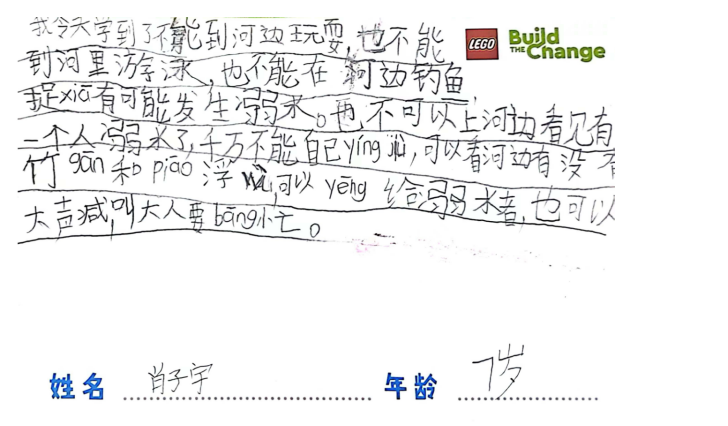 我今天学到了不能到河边玩耍,也不能
LEGO Build THE Change
到河里游泳,也不能在河边钓鱼
捉xiā有可能发生溺水。也不可以上河边看见有
一个人溺水了,千万不能自己yíng jiù,可以看河边有没有
竹gān和piāo浮wù,可以yēng给溺水者,也可以
大声减,叫大人要bāng忙。
姓名 肖子宇 年龄 7岁